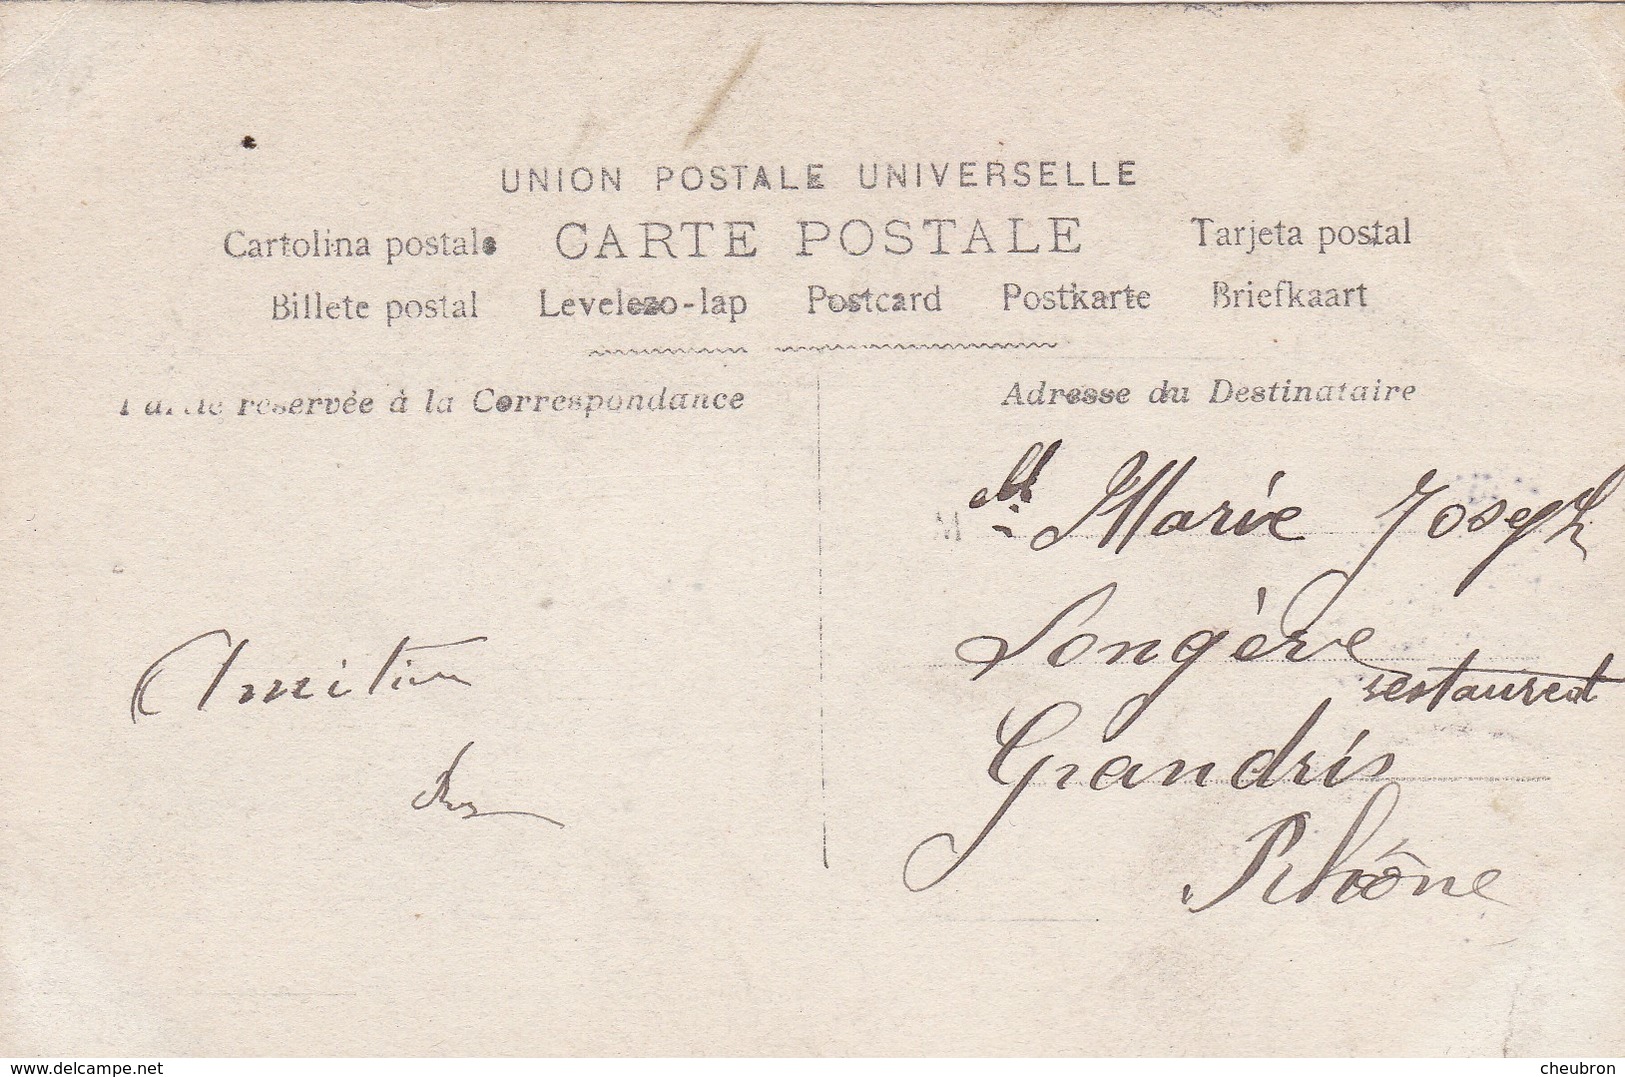 UNION POSTALE UNIVERSELLE
Cartolina postale CARTE POSTALE Tarjeta postal
Billete postal Levelezo-lap Postcard Postkarte Briefkaart
Partie réservée à la Correspondance
Adresse du Destinataire
M Marie Joseph
Longère
restaurent
Grandris
Rhône
delcampe.net
cheubron